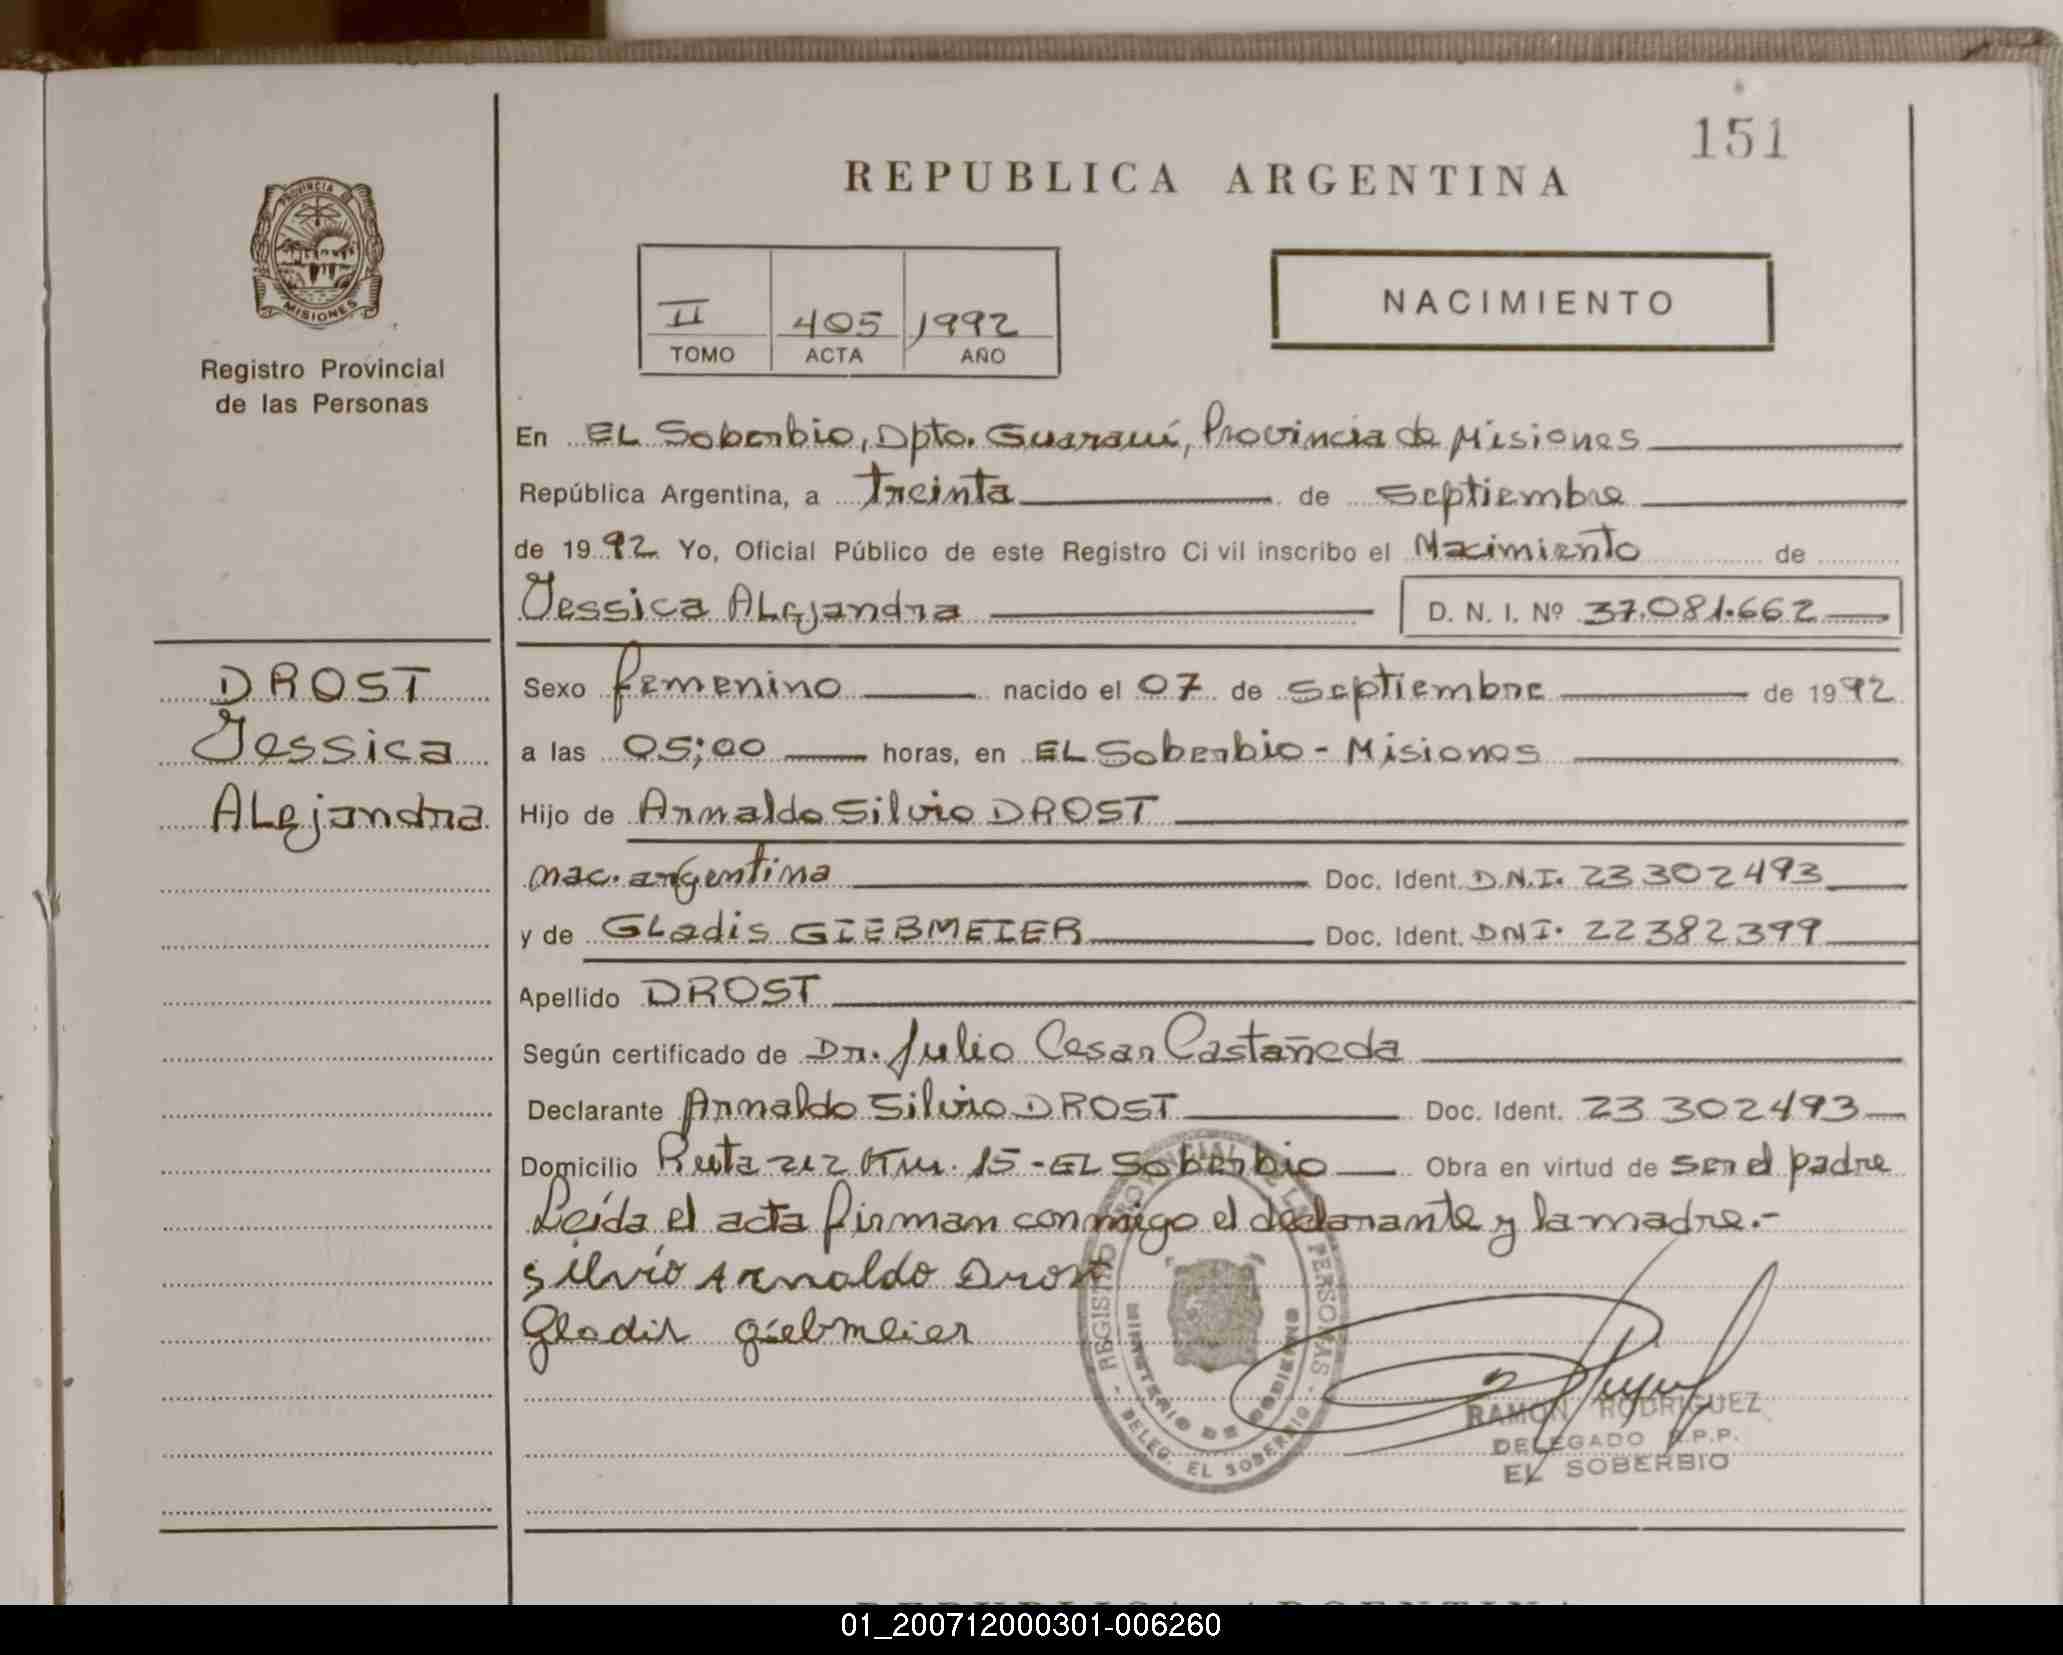 151
REPUBLICA ARGENTINA
PROVINCIA DE
MISIONES
Registro Provincial
de las Personas
II 405 1992
TOMO ACTA AÑO
NACIMIENTO
En EL Soberbio, Dpto. Guaraní, Provincia de Misiones
República Argentina, a treinta de Septiembre
de 1992 Yo, Oficial Público de este Registro Civil inscribo el Nacimiento de
Jessica ALejandra D. N. I. Nº 37.081.662
DROST
Jessica
ALejandra
Sexo femenino nacido el 07 de Septiembre de 1992
a las 05;00 horas, en EL Soberbio - Misiones
Hijo de Arnaldo Silvio DROST
nac. argentina Doc. Ident. D.N.I. 23 302 493
y de GLadis GIEBMEIER Doc. Ident. DNI. 22 382 399
Apellido DROST
Según certificado de Dr. Julio Cesar Castañeda
Declarante Arnaldo Silvio DROST Doc. Ident. 23 302 493
Domicilio Ruta 212 Km. 15 - EL Soberbio Obra en virtud de ser el padre
Leída el acta firman conmigo el declarante y la madre.-
Silvio Arnaldo Drost
Gladis giebmeier
REGISTRO PROVINCIAL DE LAS PERSONAS - DELEG. EL SOBERBIO -
MINISTERIO DE GOBIERNO
RAMON RODRIGUEZ
DELEGADO R.P.P.
EL SOBERBIO
REPUBLICA ARGENTINA
01_200712000301-006260